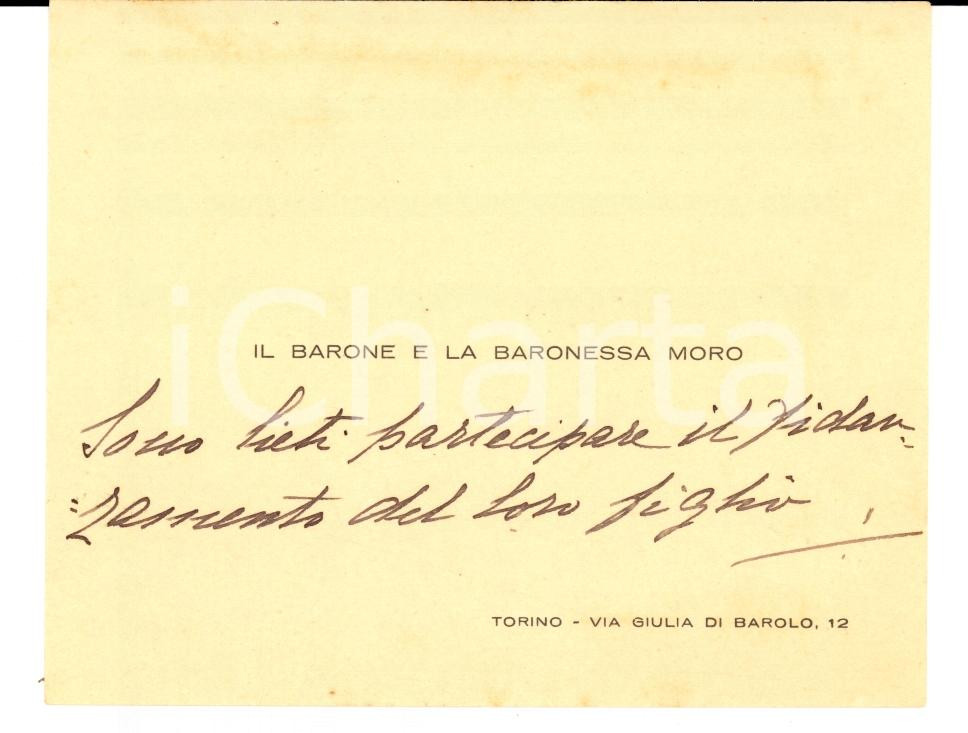 iCharta
IL BARONE E LA BARONESSA MORO
Sono lieti partecipare il fidan=
=zamento del loro figlio
TORINO - VIA GIULIA DI BAROLO, 12